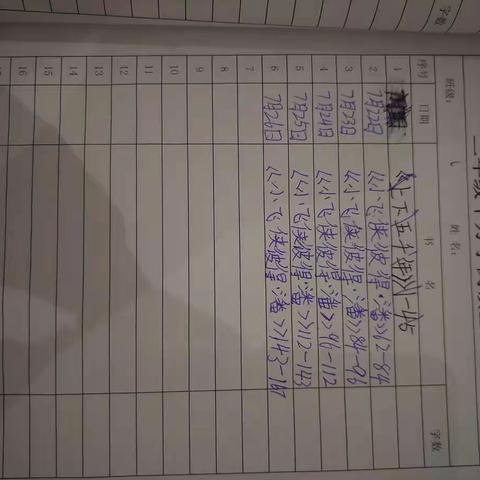 字数
班级： 姓名：
序号 日期 书名 字数
1 《上下五千年》1-45
2 7月22日 《小飞侠彼得·潘》62-84
3 7月23日 《小飞侠彼得·潘》84-96
4 7月24日 《小飞侠彼得·潘》96-112
5 7月25日 《小飞侠彼得·潘》112-143
6 7月26日 《小飞侠彼得·潘》143-167
7
8
9
10
11
12
13
14
15
16